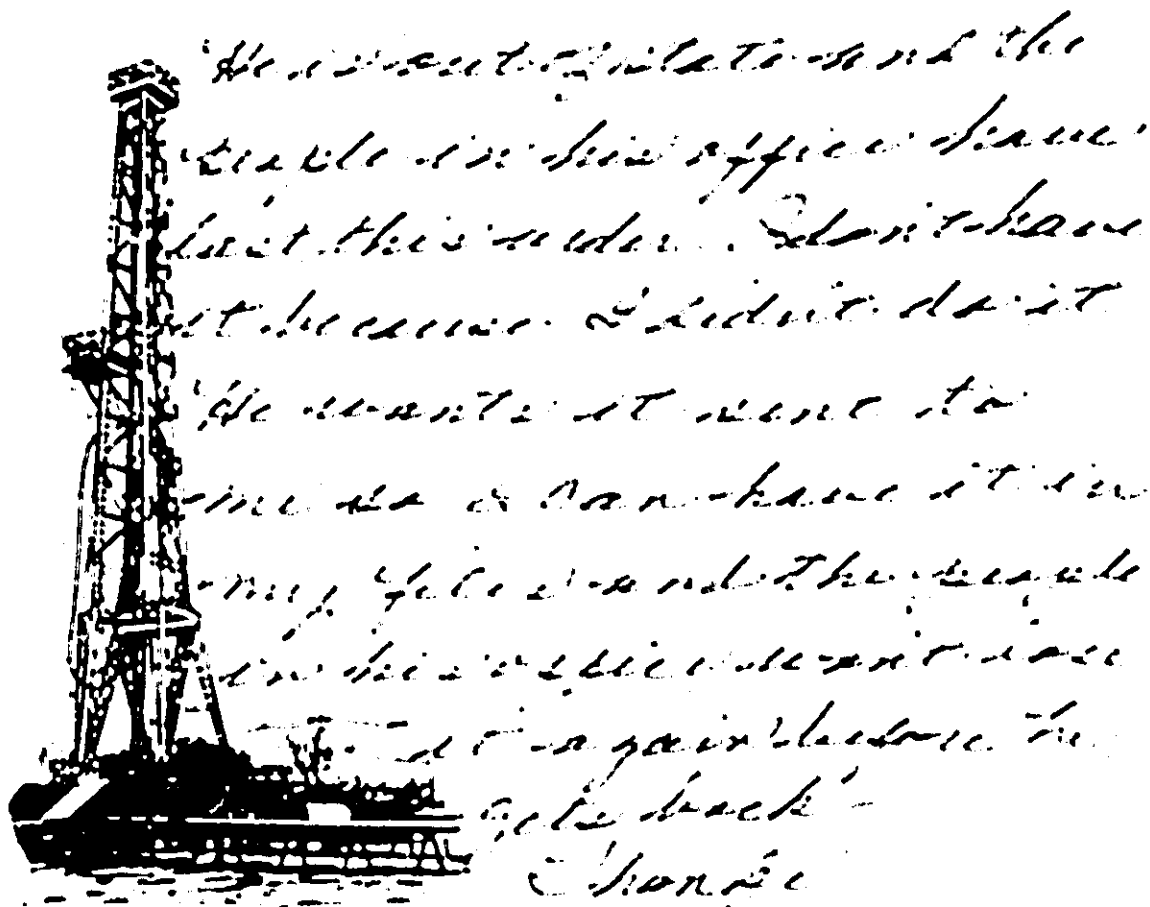 He is out of state and the
people in his office have
lost this order. I don't have
it because I didn't do it
He wants it sent to
me so I can have it in
my files and the people
in his office don't lose
it again before he
gets back -
Thanks